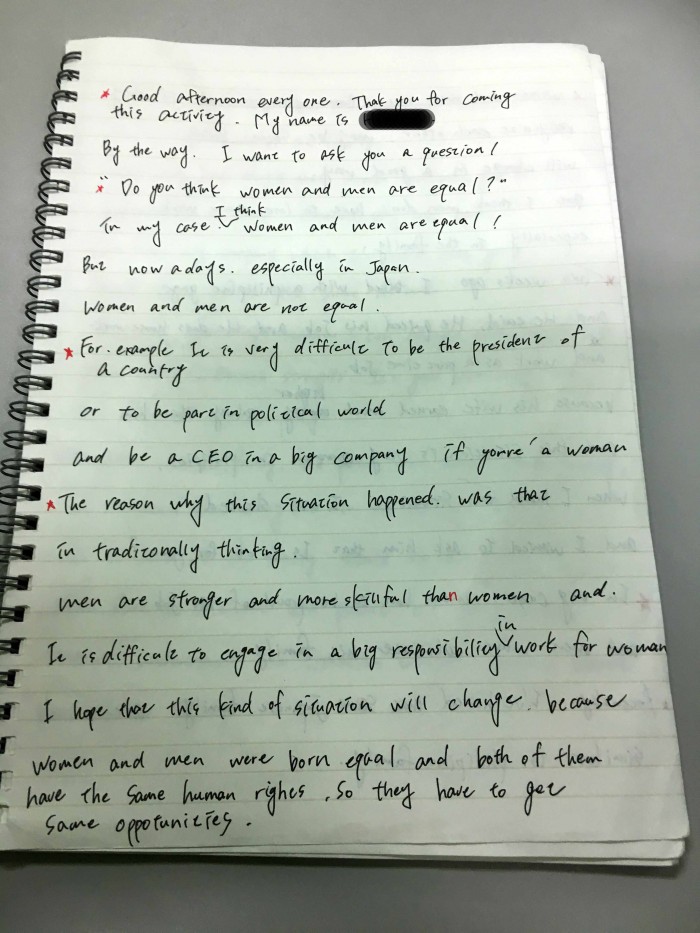 * Good afternoon every one. Thak you for coming
this activity. My name is
By the way. I want to ask you a question!
* "Do you think women and men are equal?"
In my case. I think women and men are equal!
But now a days. especially in Japan.
Women and men are not equal.
* For. example It is very difficult to be the president of
a country
or to be part in political world
and be a CEO in a big company if you're a woman
* The reason why this situation happened. was that
in traditonally thinking.
men are stronger and more skillful than women and.
It is difficult to engage in a big responsibility in work for woman
I hope that this kind of situation will change. because
women and men were born equal and both of them
have the same human rights. So they have to get
same oppotunities.